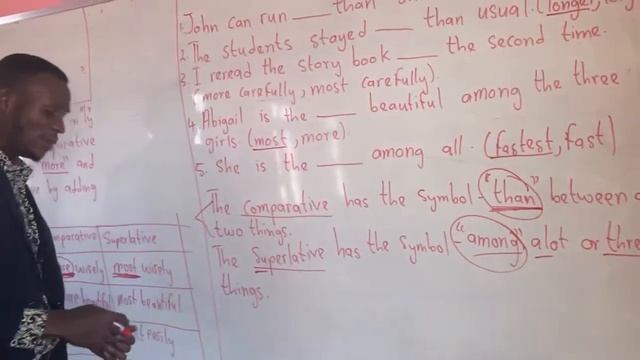 1. John can run ___ than
2. The students stayed ___ than usual. (longer,
3. I reread the story book ___ the second time.
(more carefully, most carefully).
4. Abigail is the ___ beautiful among the three
girls. (most, more).
5. She is the ___ among all. (fastest, fast)
The comparative has the symbol - "than" between
two things.
The Superlative has the symbol - "among" alot or three
things.
ly
more" and
by adding
Superlative
wisely most wisely
most beautiful
easily